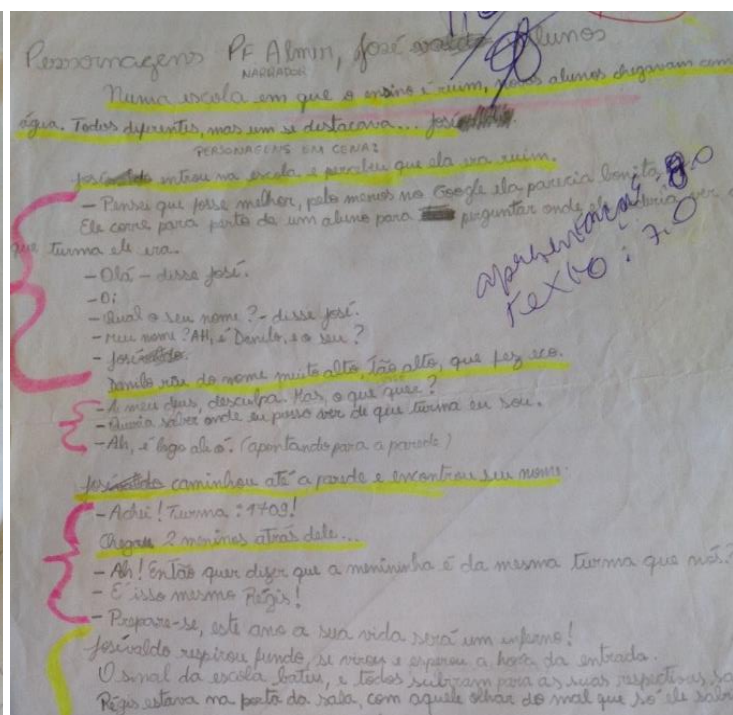 Personagens PF Almir, José alunos
NARRADOR
Numa escola em que o ensino é ruim, novos alunos chegavam como
água. Todos diferentes, mas um se destacava... José
PERSONAGENS EM CENA:
José entrou na escola e percebeu que ela era ruim.
- Pensei que fosse melhor, pelo menos no Google ela parecia bonita.
Ele corre para perto de um aluno para perguntar onde ele ver
que turma ele era.
apresentação: 8.0
texto: 7.0
- Olá - disse José.
- Oi
- Qual o seu nome? - disse José.
- Meu nome? AH, é Danilo, e o seu?
- José
Danilo riu do nome muito alto, tão alto, que fez eco.
- A meu deus, desculpa. Mas, o que quer?
- Queria saber onde eu posso ver de que turma eu sou.
- Ah, é logo ali ó. (apontando para a parede)
José caminhou até a parede e encontrou seu nome.
- Achei! Turma: 1709!
Chegou 2 meninos atrás dele...
- Ah! Então quer dizer que a menininha é da mesma turma que nós?
- É isso mesmo Régis!
- Prepare-se, este ano a sua vida será um inferno!
Josivaldo respirou fundo, se virou e esperou a hora da entrada.
O sinal da escola bateu, e todos subiram para as suas respectivas sa
Régis estava na porta da sala, com aquele olhar do mal que só ele sabi